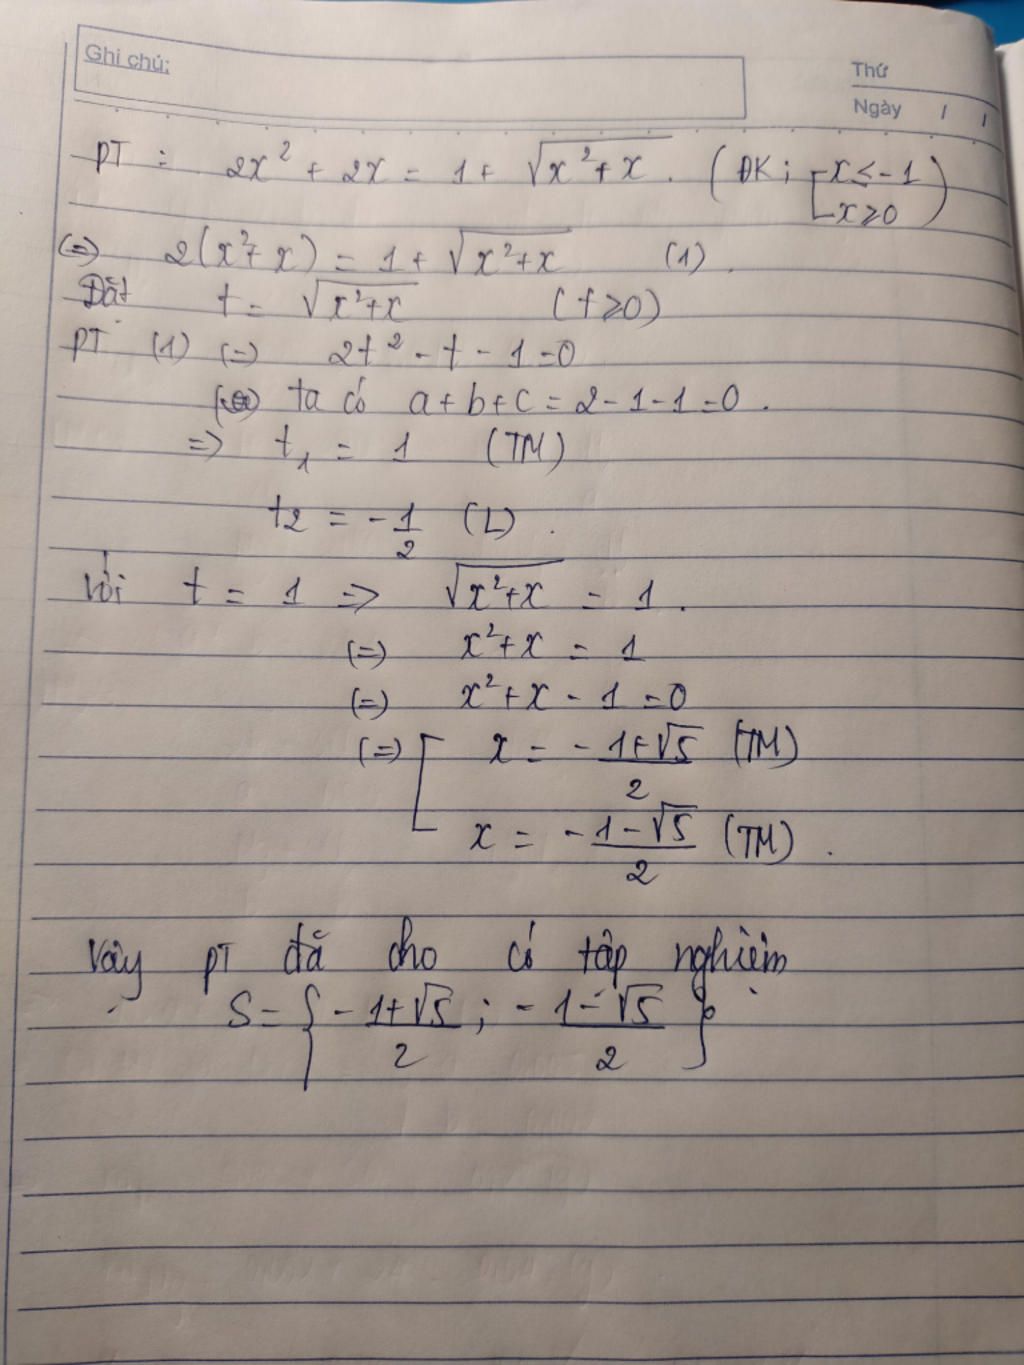 Ghi chú:
Thứ
Ngày / /
PT : 2x² + 2x = 1 + √(x² + x) . (ĐK : [ x ≤ -1
x ≥ 0 )
(=) 2(x² + x) = 1 + √(x² + x) (1) .
Đặt t = √(x² + x) (t ≥ 0)
PT (1) (=) 2t² - t - 1 = 0
ta có a + b + c = 2 - 1 - 1 = 0 .
=> t₁ = 1 (TM)
t₂ = -1/2 (L) .
Với t = 1 => √(x² + x) = 1 .
(=) x² + x = 1
(=) x² + x - 1 = 0
(=) [ x = - (1 + √5)/2 (TM)
x = - (1 - √5)/2 (TM) .
Vậy PT đã cho có tập nghiệm
S = { - (1 + √5)/2 ; - (1 - √5)/2 }